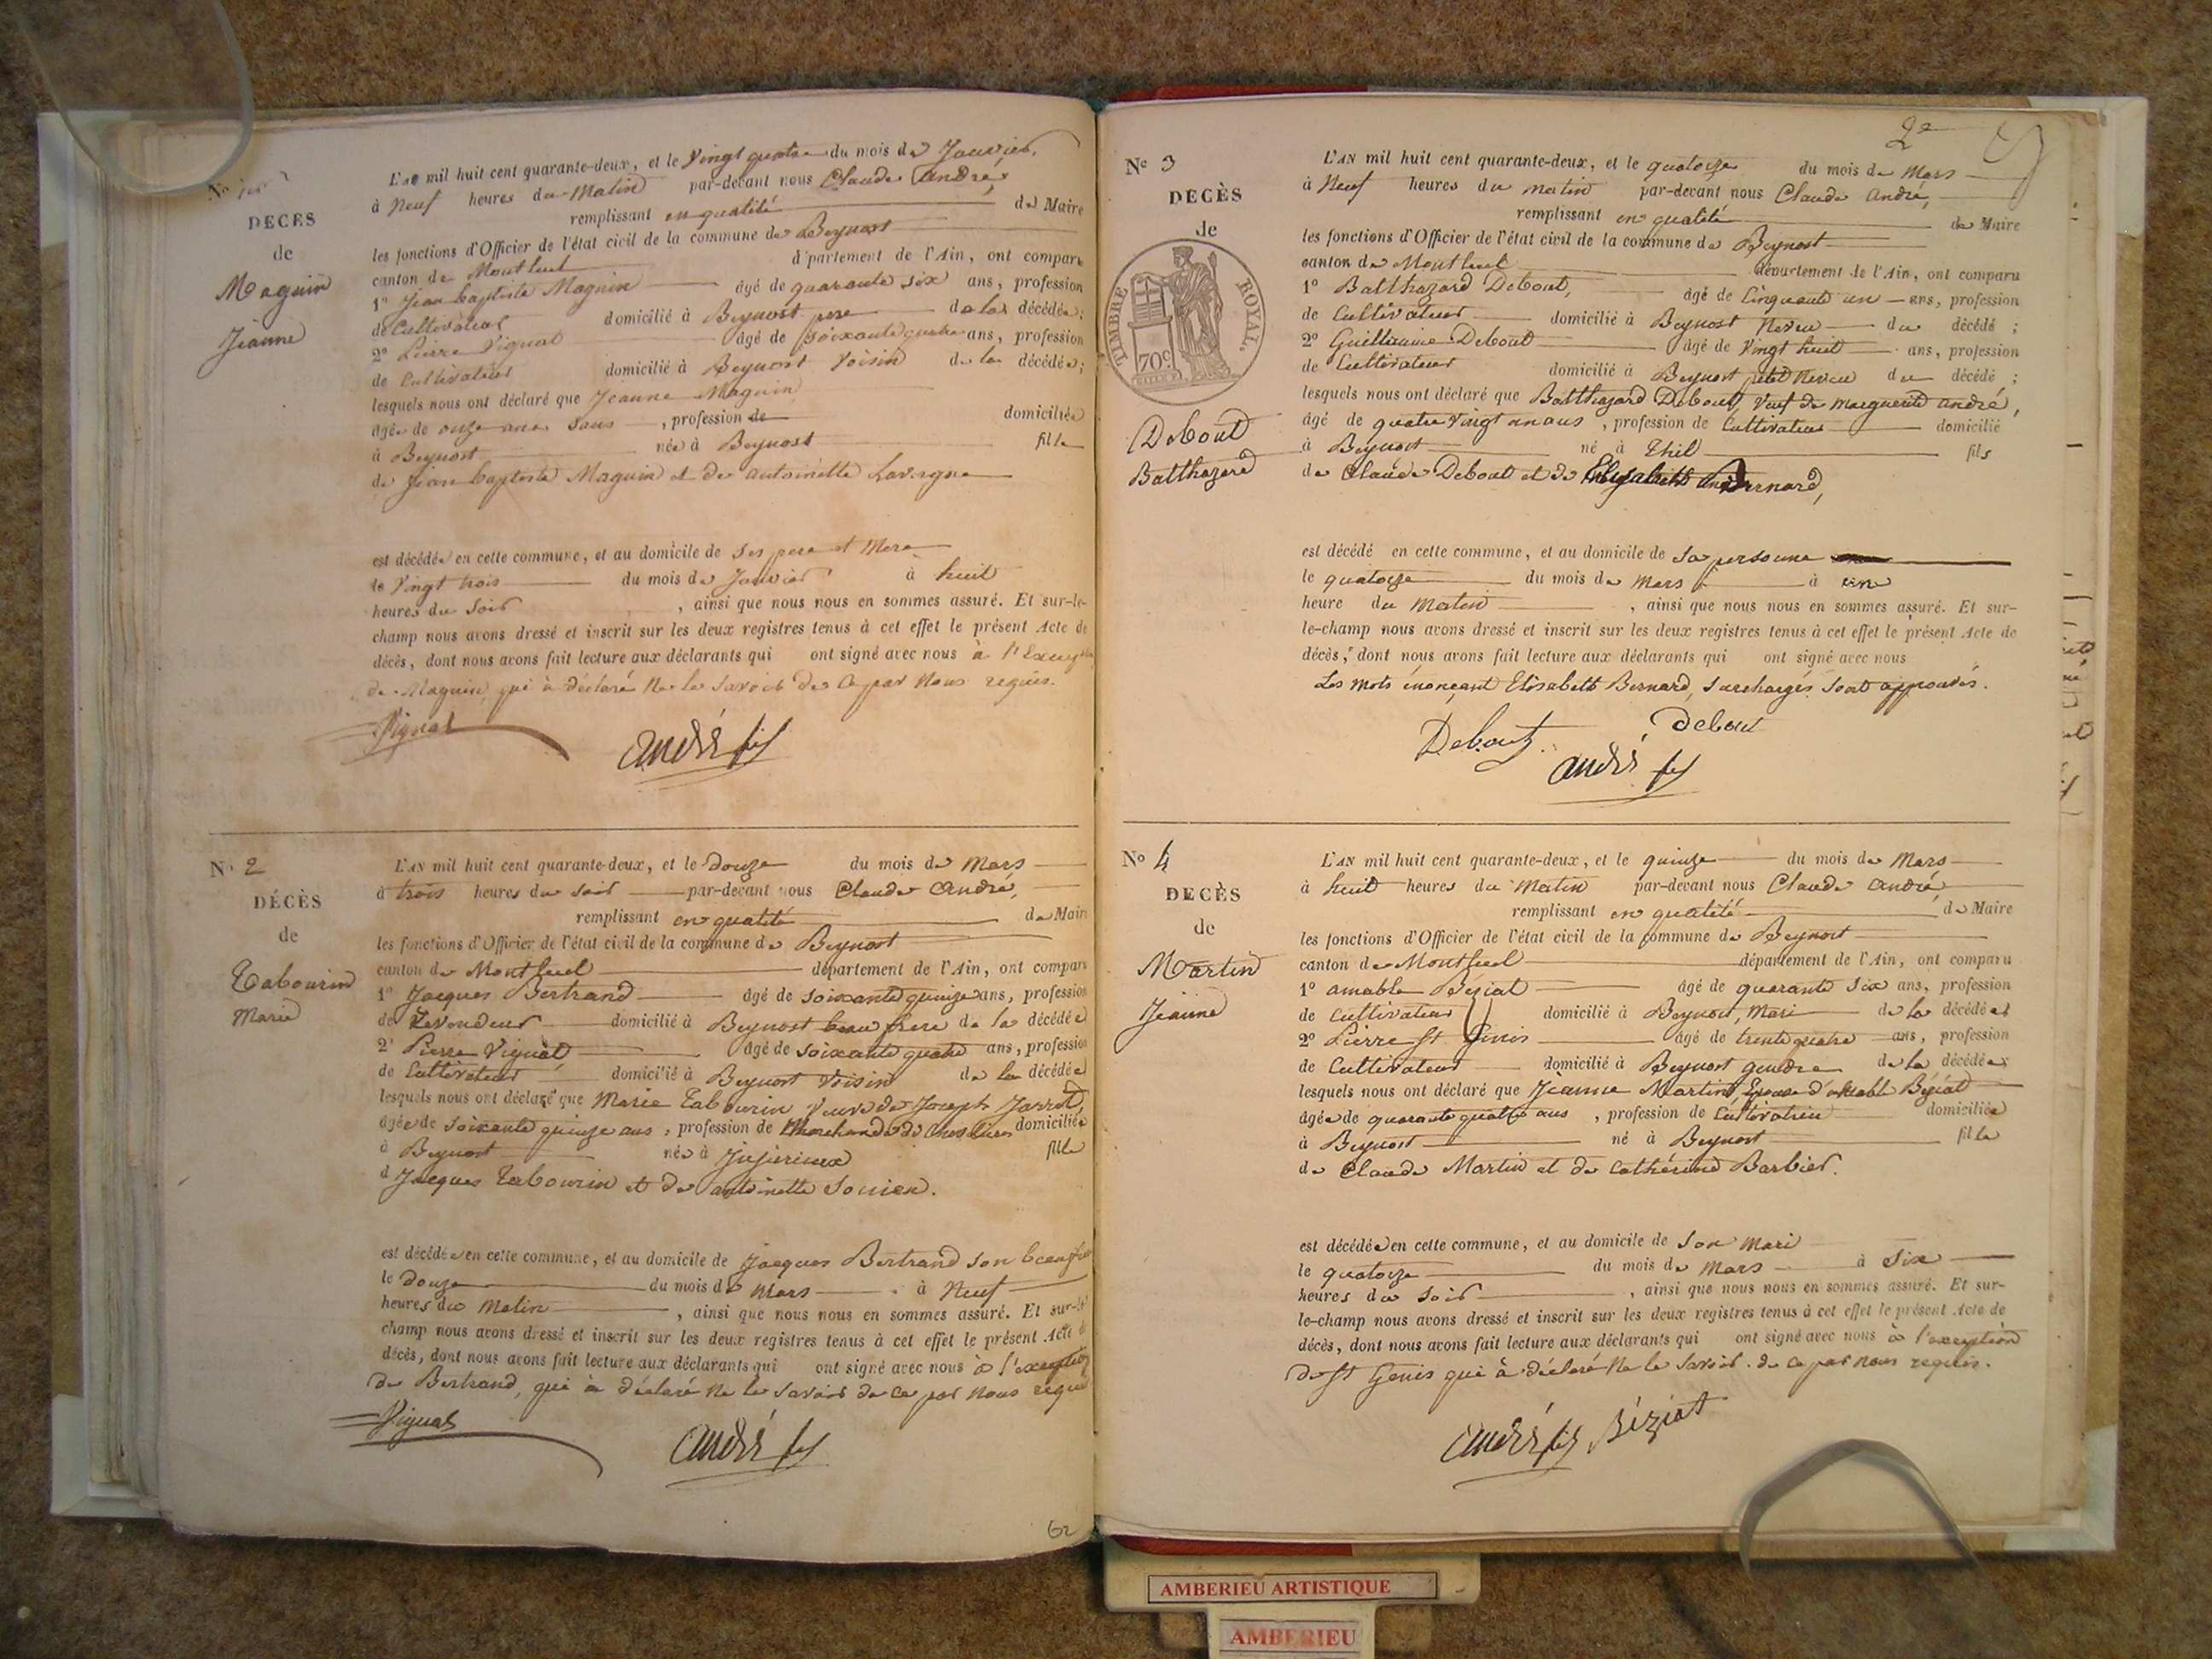 DECES
de
Maguin
Jeanne
L'an mil huit cent quarante-deux, et le Vingt quatre du mois de Janvier,
à Neuf heures du Matin par-devant nous Claude André,
remplissant en qualité de Maire
les fonctions d'Officier de l'état civil de la commune de Beynost
canton de Montluel département de l'Ain, ont comparu
1° Jean baptiste Maguin âgé de quarante six ans, profession
de Cultivateur domicilié à Beynost pere de la décédée;
2° Pierre Vignat âgé de soixante quatre ans, profession
de Cultivateur domicilié à Beynost Voisin de la décédée;
lesquels nous ont déclaré que Jeanne Maguin
âgée de onze ans sans, profession de domiciliée
à Beynost née à Beynost fille
de Jean baptiste Maguin et de antoinette Lavergne
est décédée en cette commune, et au domicile de ses pere et Mere
le Vingt trois du mois de Janvier à huit
heures du Soir, ainsi que nous nous en sommes assuré. Et sur-le-
champ nous avons dressé et inscrit sur les deux registres tenus à cet effet le présent Acte de
décès, dont nous avons fait lecture aux déclarants qui ont signé avec nous à l'Exception
de Maguin, qui à déclaré Ne le Savoir de ce par Nous requis.
Vignat
André fils
N° 2
DÉCÈS
de
Tabourin
Marie
L'AN mil huit cent quarante-deux, et le douze du mois de Mars
à trois heures du soir par-devant nous Claude André,
remplissant en qualité de Maire
les fonctions d'Officier de l'état civil de la commune de Beynost
canton de Montluel département de l'Ain, ont comparu
1° Jacques Bertrand âgé de soixante quinze ans, profession
de Revendeur domicilié à Beynost beau frere de la décédée
2° Pierre Vignat âgé de soixante quatre ans, profession
de Cultivateur domicilié à Beynost Voisin de la décédée
lesquels nous ont déclaré que Marie Tabourin Veuve de Joseph Jarrot,
âgée de soixante quinze ans, profession de Marchande de domiciliée
à Beynost née à Jujurieux fille
d Jacques Tabourin et de antoinette Sonier.
est décédée en cette commune, et au domicile de Jacques Bertrand son beaufrere
le douze du mois de Mars à Neuf
heures du Matin, ainsi que nous nous en sommes assuré. Et sur-le
champ nous avons dressé et inscrit sur les deux registres tenus à cet effet le présent Acte de
décès, dont nous avons fait lecture aux déclarants qui ont signé avec nous à l'exception
de Bertrand, qui à déclaré Ne le Savoir de ce par Nous requis
Vignat
André fils
62
2e
N° 3
DECÈS
de
TIMBRE ROYAL.
70c.
Debout
Balthazard
L'AN mil huit cent quarante-deux, et le quatorze du mois de Mars
à Neuf heures du matin par-devant nous Claude André,
remplissant en qualité de Maire
les fonctions d'Officier de l'état civil de la commune de Beynost
canton de Montluel département de l'Ain, ont comparu
1° Balthazard Debout, âgé de Cinquante un ans, profession
de Cultivateur domicilié à Beynost Neveu du décédé;
2° Guillaume Debout âgé de Vingt huit ans, profession
de Cultivateur domicilié à Beynost petit Neveu du décédé;
lesquels nous ont déclaré que Balthazard Debout, Veuf de Marguerite André,
âgé de quatre Vingt un ans, profession de Cultivateur domicilié
à Beynost né à Thil fils
de Claude Debout et de Elisabeth Bernard,
est décédé en cette commune, et au domicile de sa personne
le quatorze du mois de Mars à une
heure du Matin, ainsi que nous nous en sommes assuré. Et sur-
le-champ nous avons dressé et inscrit sur les deux registres tenus à cet effet le présent Acte de
décès, dont nous avons fait lecture aux déclarants qui ont signé avec nous
Les mots énonçant Elisabeth Bernard, surchargés sont approuvés.
Debout
Debout
André fils
N° 4
DECÈS
de
Martin
Jeanne
L'AN mil huit cent quarante-deux, et le quinze du mois de Mars
à huit heures du Matin par-devant nous Claude André
remplissant en qualité de Maire
les fonctions d'Officier de l'état civil de la commune de Beynost
canton de Montluel département de l'Ain, ont comparu
1° amable Béziat âgé de quarante six ans, profession
de cultivateur domicilié à Beynost, Mari de la décédée
2° Pierre St Genis âgé de trente quatre ans, profession
de Cultivateur domicilié à Beynost gendre de la décédée
lesquels nous ont déclaré que Jeanne Martin, Epouse d'amable Béziat
âgée de quarante quatre ans, profession de Cultivatrice domiciliée
à Beynost né à Beynost fille
de Claude Martin et de Cathérine Barbier.
est décédée en cette commune, et au domicile de Son Mari
le quatorze du mois de Mars à Six
heures du Soir, ainsi que nous nous en sommes assuré. Et sur-
le-champ nous avons dressé et inscrit sur les deux registres tenus à cet effet le présent Acte de
décès, dont nous avons fait lecture aux déclarants qui ont signé avec nous à l'exception
de St Genis qui à déclaré Ne le Savoir de ce par nous requis.
André fils Béziat
AMBERIEU ARTISTIQUE
AMBERIEU